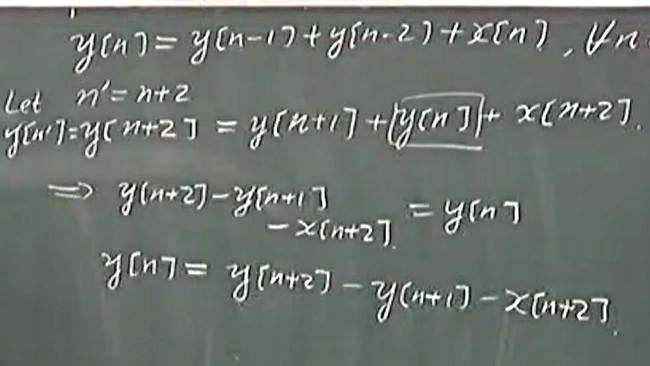 y[n] = y[n-1] + y[n-2] + x[n], ∀n
Let n' = n+2
y[n'] = y[n+2] = y[n+1] + y[n] + x[n+2].
⇒ y[n+2] - y[n+1]
- x[n+2]. = y[n]
y[n] = y[n+2] - y[n+1] - x[n+2].